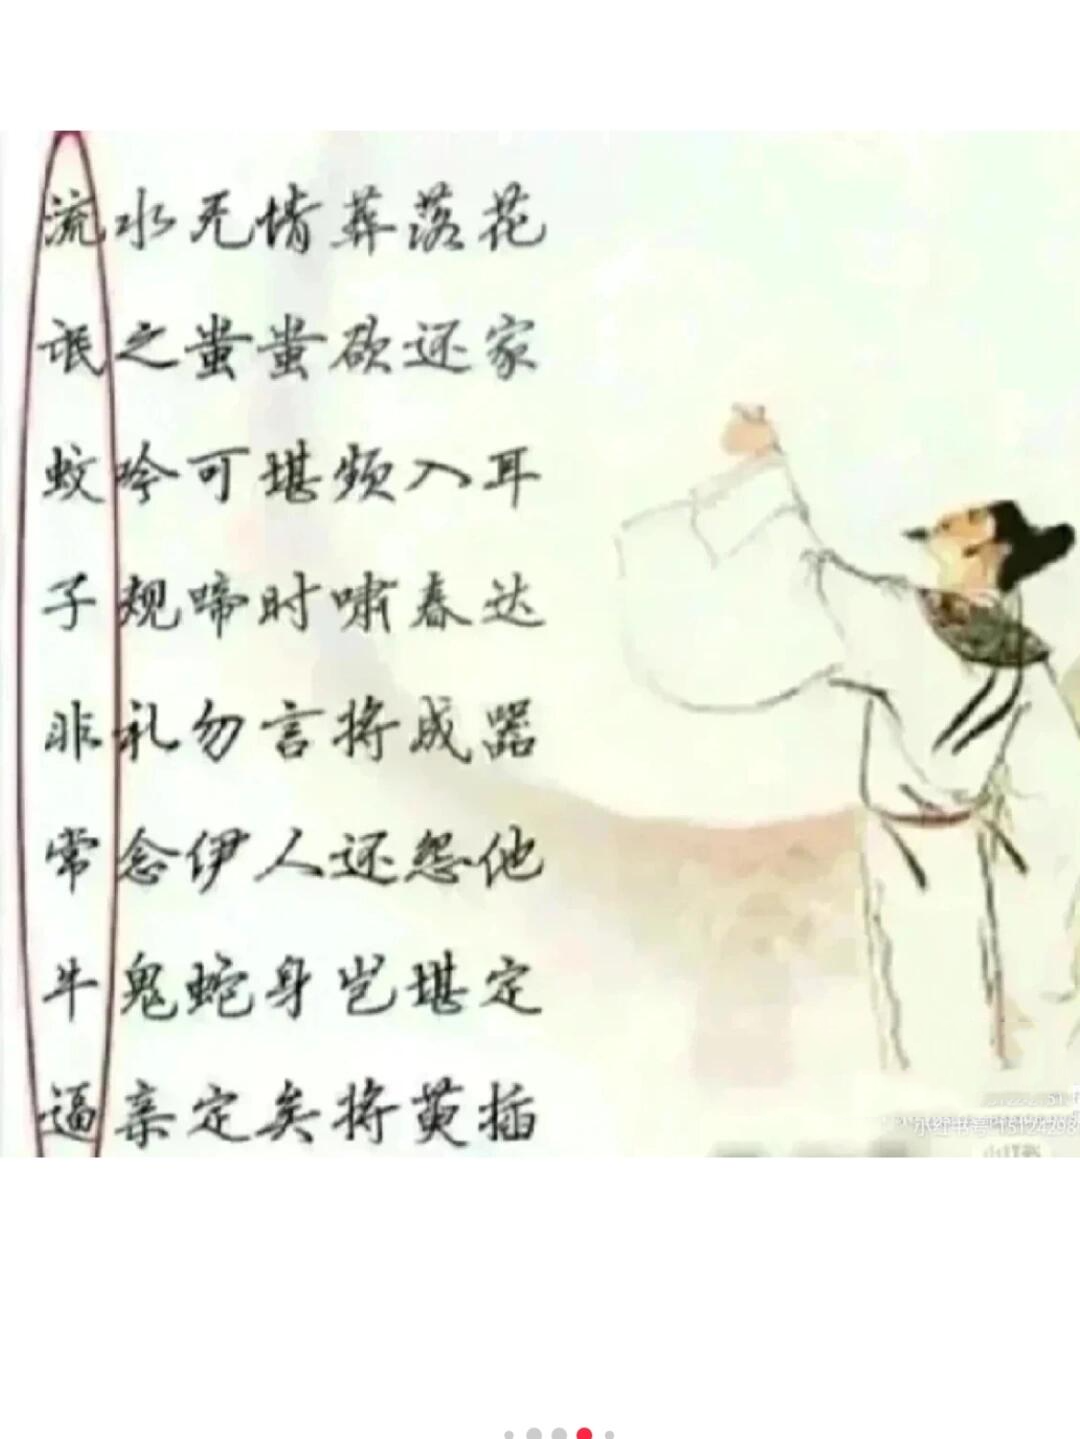 流水无情葬落花
氓之蚩蚩欲还家
蚊吟可堪频入耳
子规啼时啸春达
非礼勿言将成器
常念伊人还怨他
牛鬼蛇身岂堪定
逼亲定矣将萸插